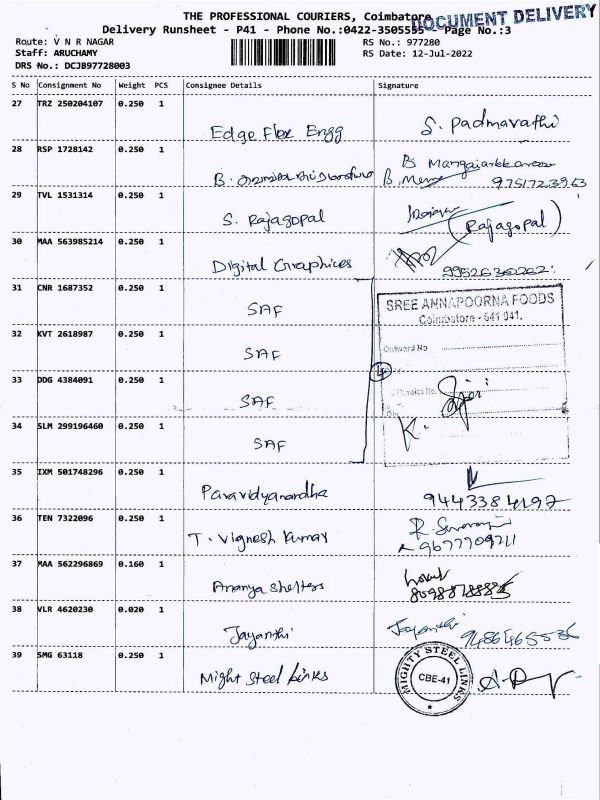 THE PROFESSIONAL COURIERS, Coimbatore
DOCUMENT DELIVERY
Delivery Runsheet - P41 - Phone No.:0422-3505555 - Page No.:3
Route: V N R NAGAR RS No.: 977280
Staff: ARUCHAMY RS Date: 12-Jul-2022
DRS No.: DCJB97728003
S No Consignment No Weight PCS Consignee Details Signature
27 TRZ 250204107 0.250 1
Edge Flex Engg S. Padmavathi
28 RSP 1728142 0.250 1
B.
9751723963
29 TVL 1531314 0.250 1
S. Rajagopal (Rajagopal)
30 MAA 563985214 0.250 1
Digital Graphices 9952630262
31 CNR 1687352 0.250 1
SAF
SREE ANNAPOORNA FOODS
Coimbatore - 641 041.
32 KVT 2618987 0.250 1
SAF
Outward No
33 DDG 4384091 0.250 1
4
SAF
34 SLM 299196460 0.250 1
SAF
K.
35 IXM 501748296 0.250 1
Paravidyanandha 9443384197
36 TEN 7322096 0.250 1
T. Vignesh Kumar
9677709211
37 MAA 562296869 0.160 1
Ananya Shelters
38 VLR 4620230 0.020 1
Jayanthi Jayanthi
39 SMG 63118 0.250 1
Might Steel Links
MIGHTY STEEL LINKS
CBE-41